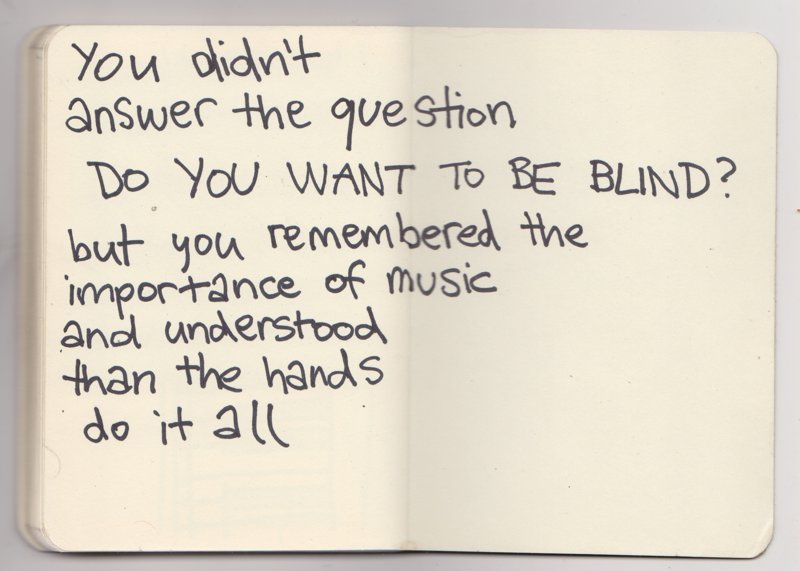 You didn't
answer the question
DO YOU WANT TO BE BLIND?
but you remembered the
importance of music
and understood
than the hands
do it all